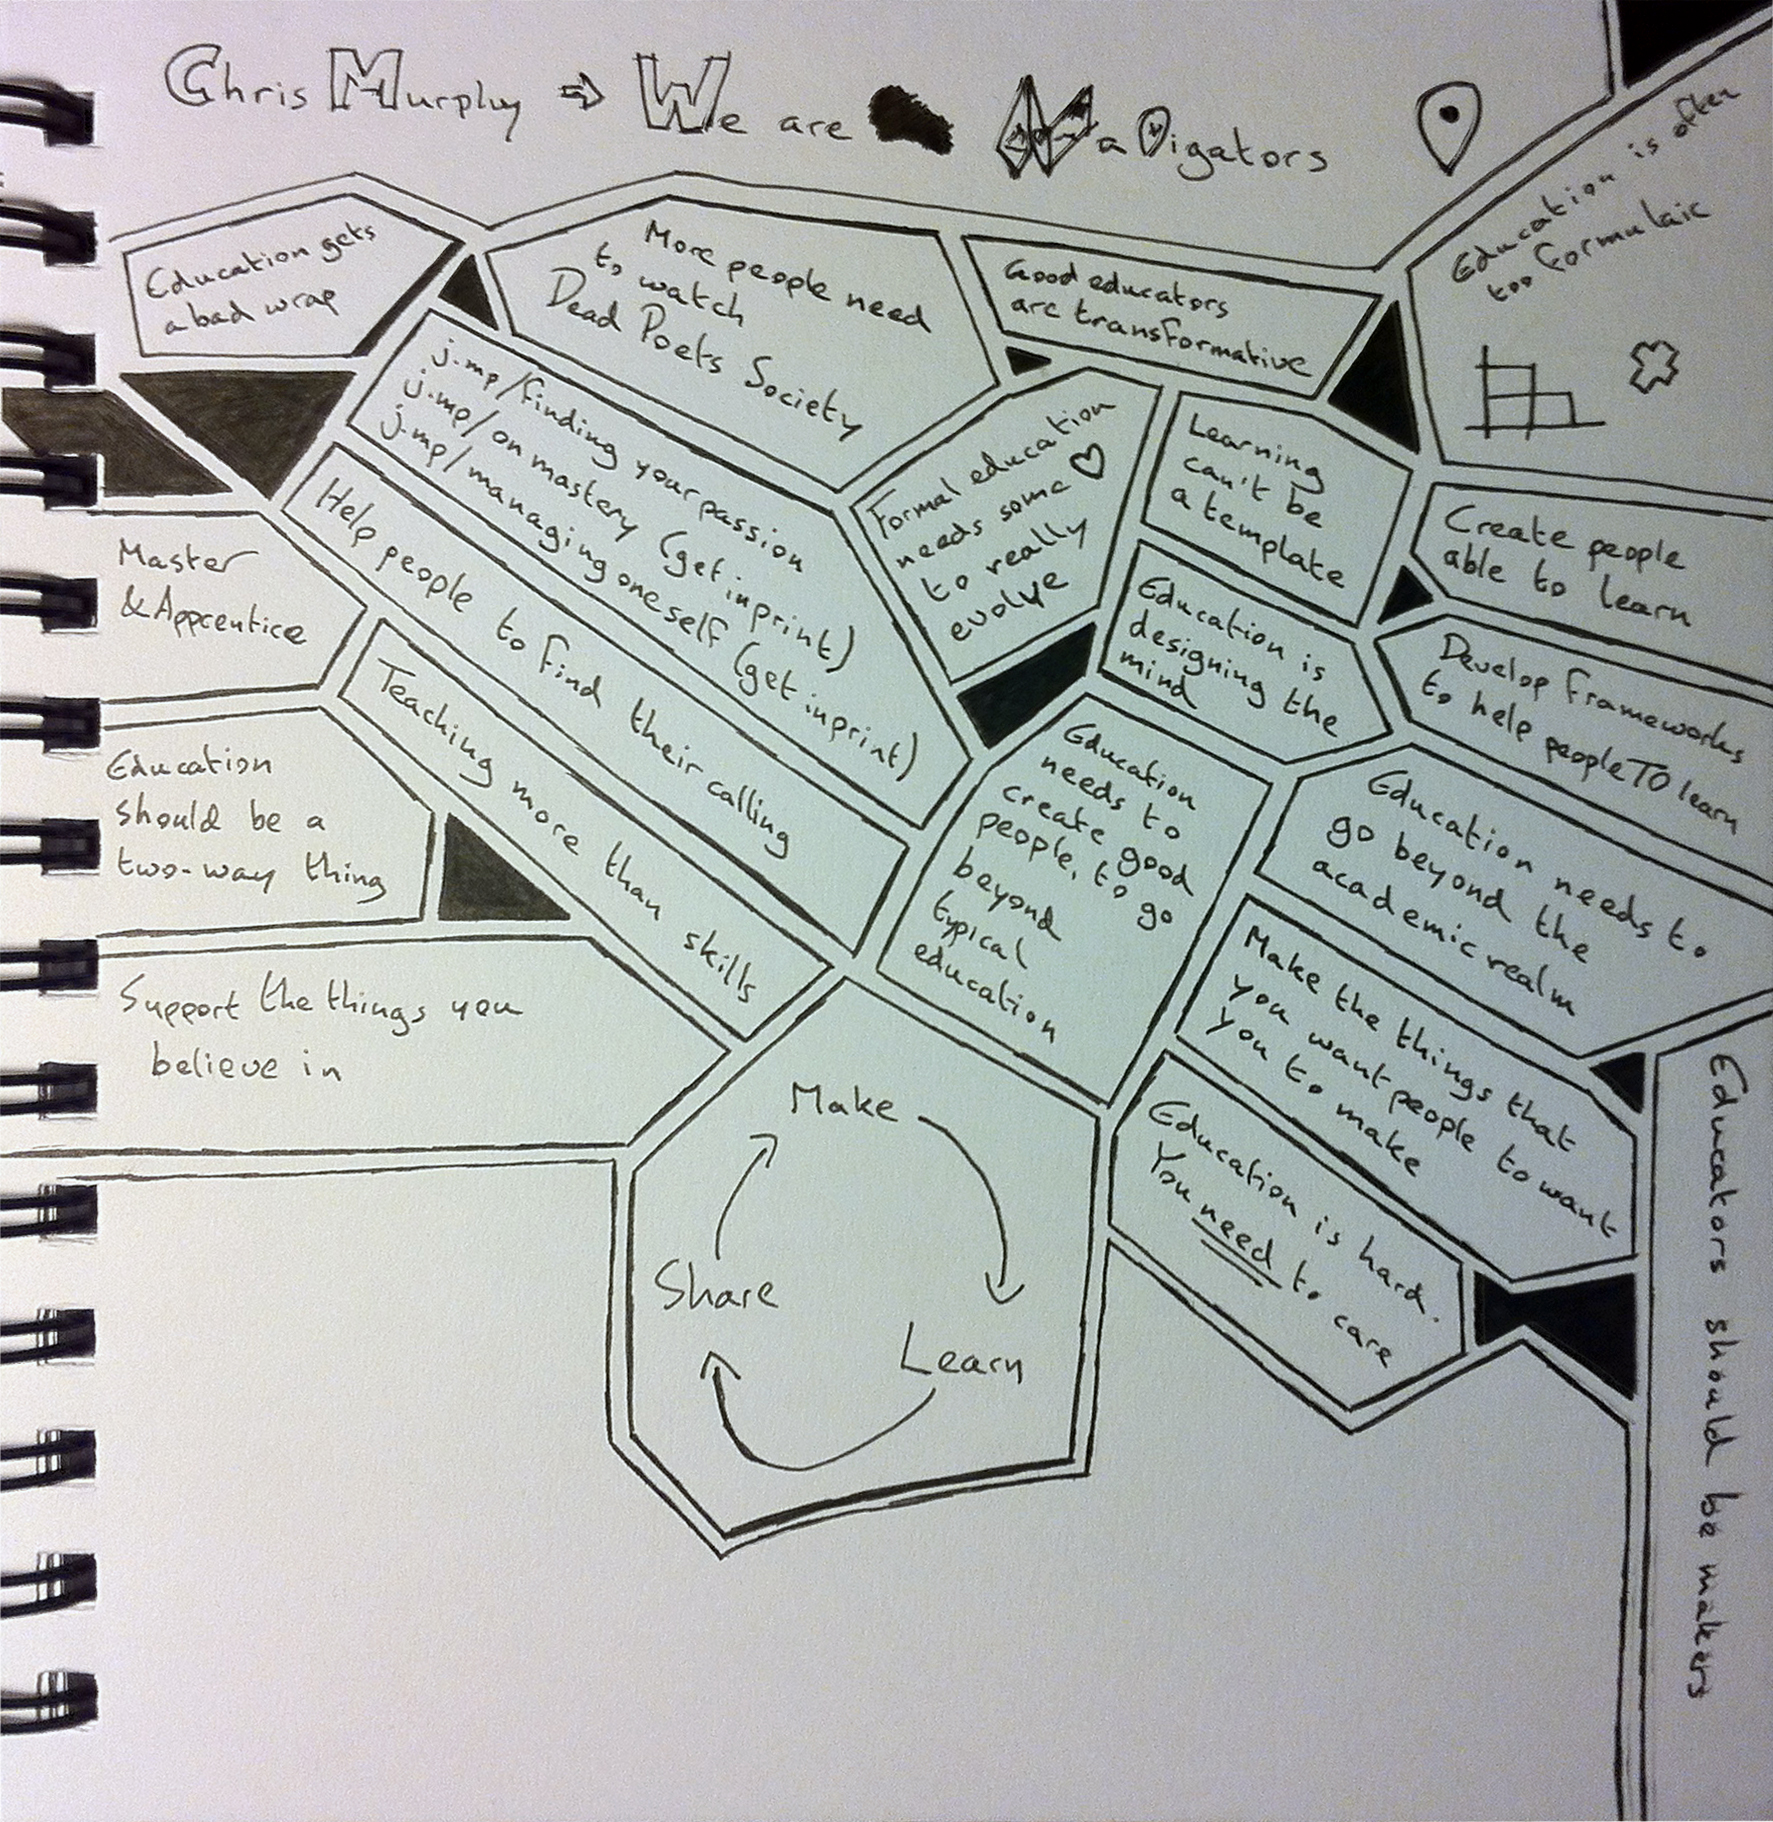 Chris Murphy ⇒ We are Navigators
Education gets
a bad wrap
More people need
to watch
Dead Poets Society
Good educators
are transformative
Education is often
too formulaic
j.mp/finding your passion
j.mp/on mastery (get in print)
j.mp/managing oneself (get in print)
Formal education
needs some ♡
to really
evolve
Learning
can't be
a template
Create people
able to learn
Help people to find their calling
Master
& Apprentice
Education is
designing the
mind
Develop frameworks
to help people TO learn
Teaching more than skills
Education
should be a
two-way thing
Education
needs to
create good
people, to go
beyond
typical
education
Education needs to
go beyond the
academic realm
Support the things you
believe in
Make the things that
you want people to want
you to make
Education is hard.
You need to care
Make
Share
Learn
Educators should be makers